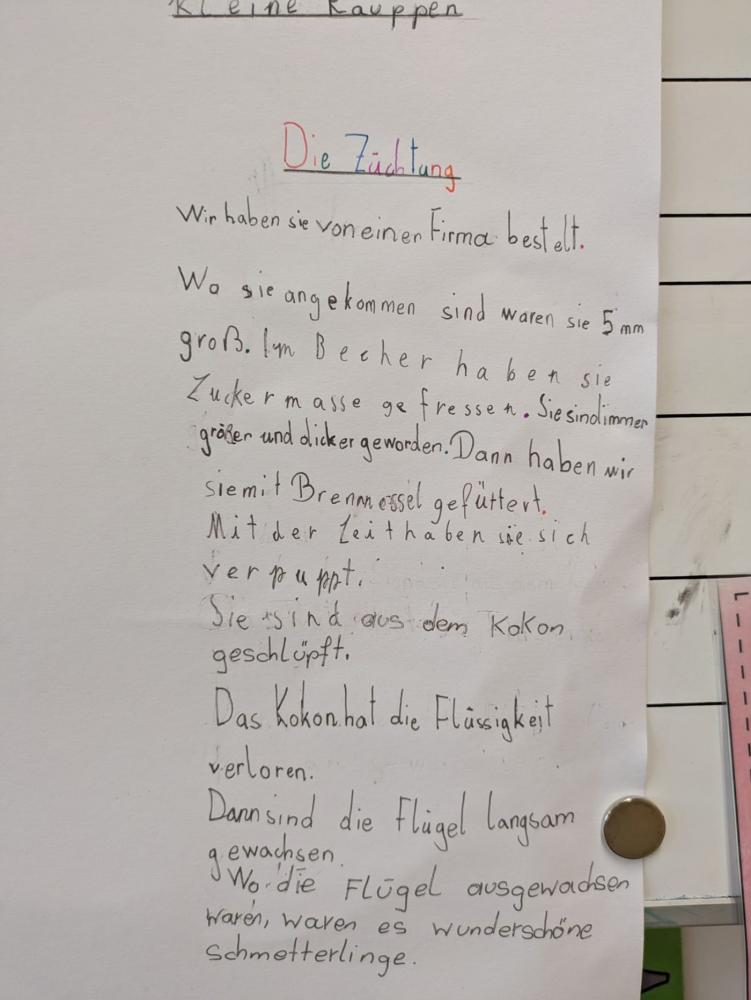 Kleine Rauppen
Die Züchtung
Wir haben sie von einer Firma bestelt.
Wo sie angekommen sind waren sie 5 mm
groß. Im Becher haben sie
Zuckermasse gefressen. Sie sind immer
größer und dicker geworden. Dann haben wir
sie mit Brennessel gefüttert.
Mit der Zeit haben sie sich
verpuppt.
Sie sind aus dem Kokon
geschlüpft.
Das Kokon hat die Flüssigkeit
verloren.
Dann sind die Flügel langsam
gewachsen.
Wo die Flügel ausgewachsen
waren, waren es wunderschöne
Schmetterlinge.